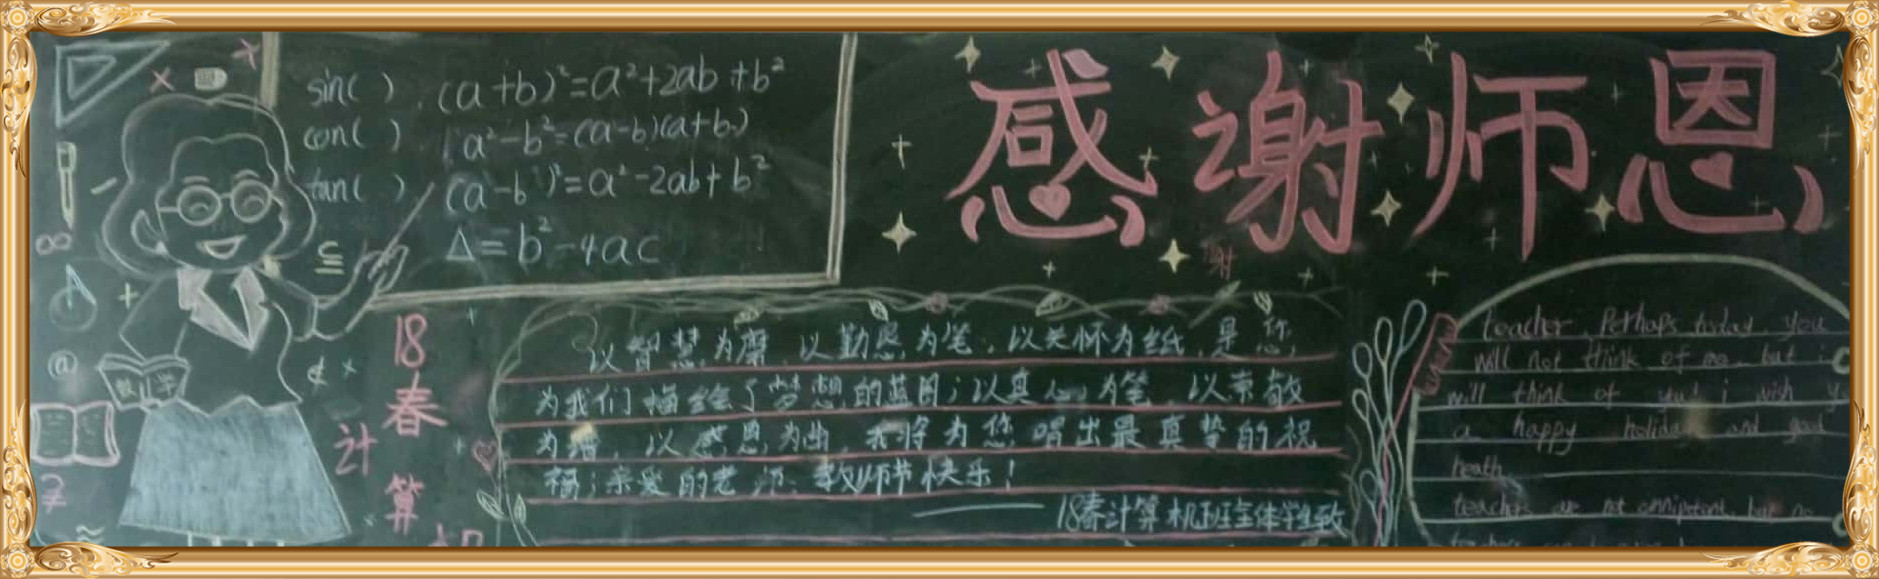 sin( ). (a+b)²=a²+2ab+b²
con( ). a²-b²=(a-b)(a+b)
tan( ). (a-b)²=a²-2ab+b²
Δ=b²-4ac
⊆
感谢师恩
谢
18
春
计
算
数学
以智慧为墨,以勤恳为笔,以关怀为纸,是您,
为我们描绘了梦想的蓝图;以真心为笔,以崇敬
为谱,以感恩为曲,我将为您唱出最真挚的祝
福;亲爱的老师:教师节快乐!
——18春计算机班全体学生致
teacher, Perhaps today, you
will not think of me but i
will think of you! i wish y
a happy holiday and good
heath
teachers are not omnipotent, but no